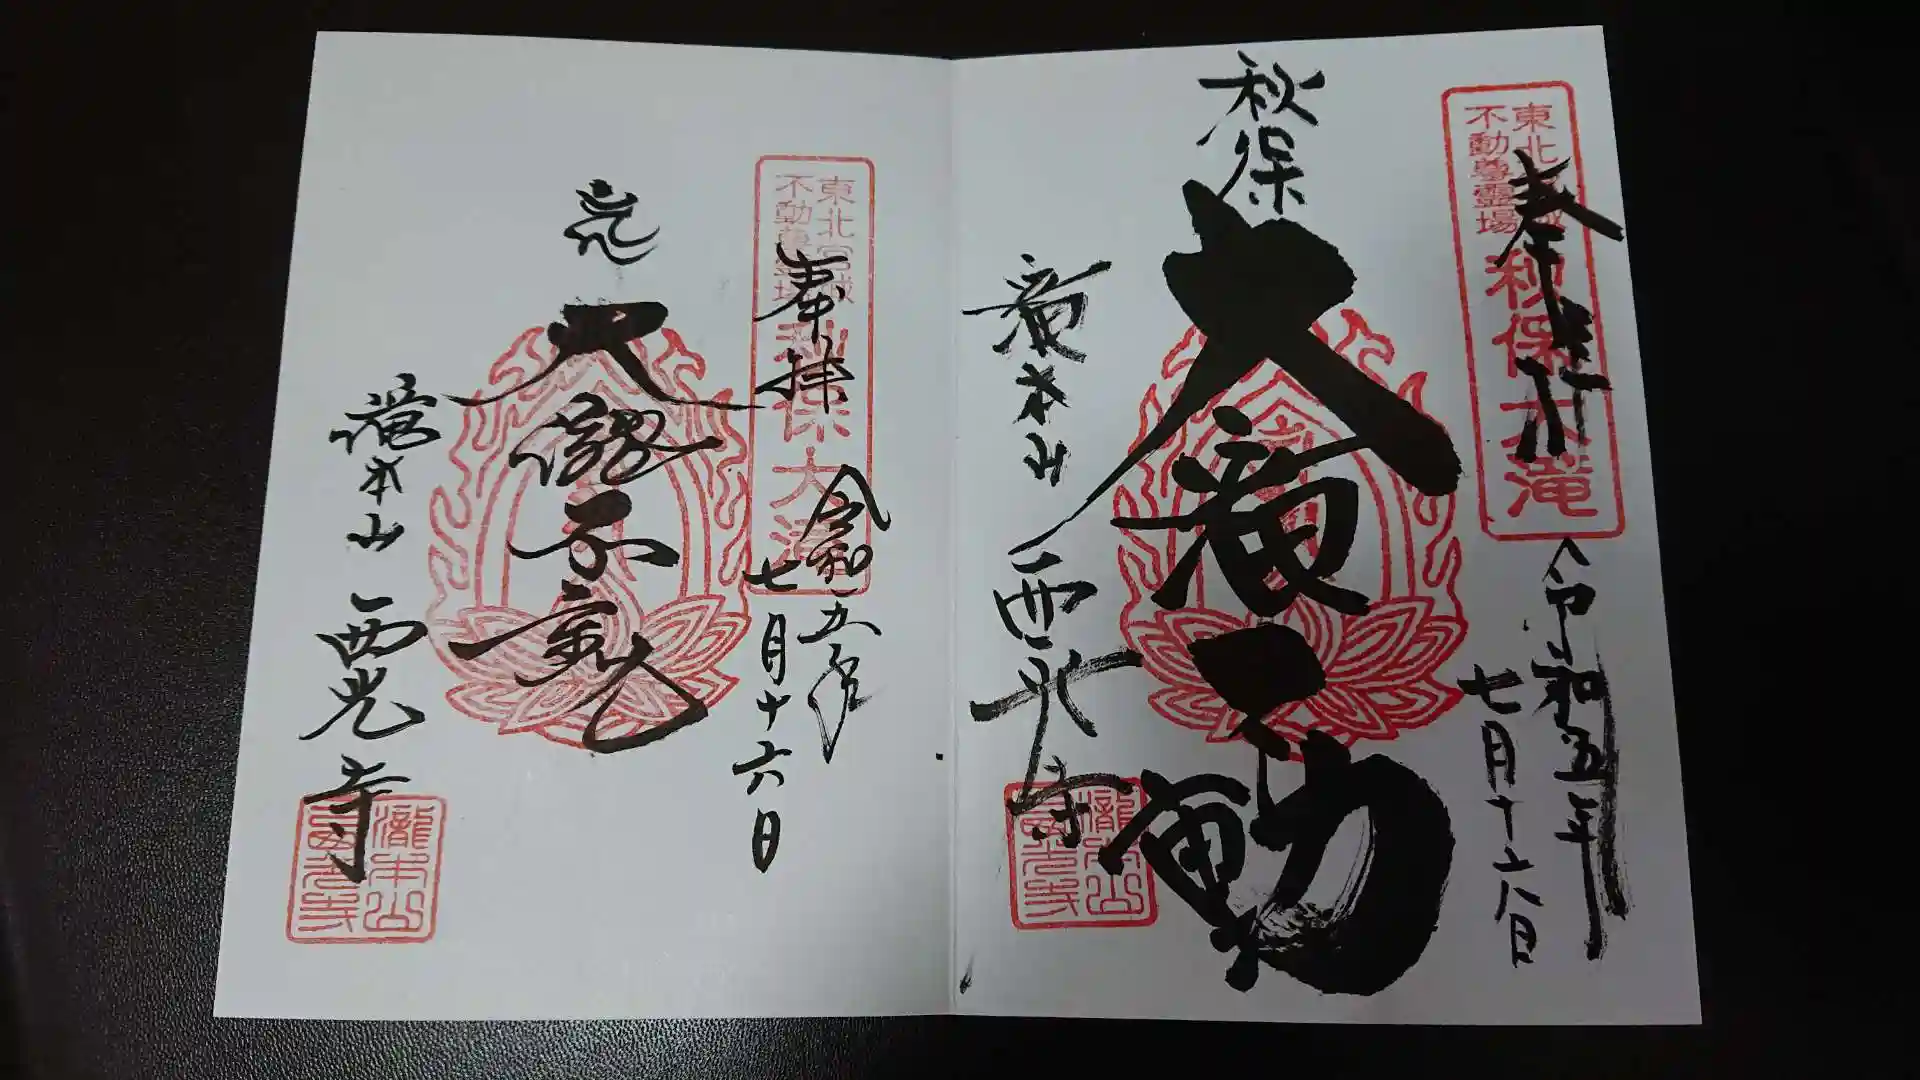 東北宮城
不動尊霊場
秋保大滝
奉拝
令和五年
七月十六日
秋保
大滝不動
滝本山
西光寺
瀧本山
西光寺
東北宮城
不動尊霊場
秋保大滝
奉拝
令和五年
七月十六日
大瀧不動
瀧本山
西光寺
瀧本山
西光寺